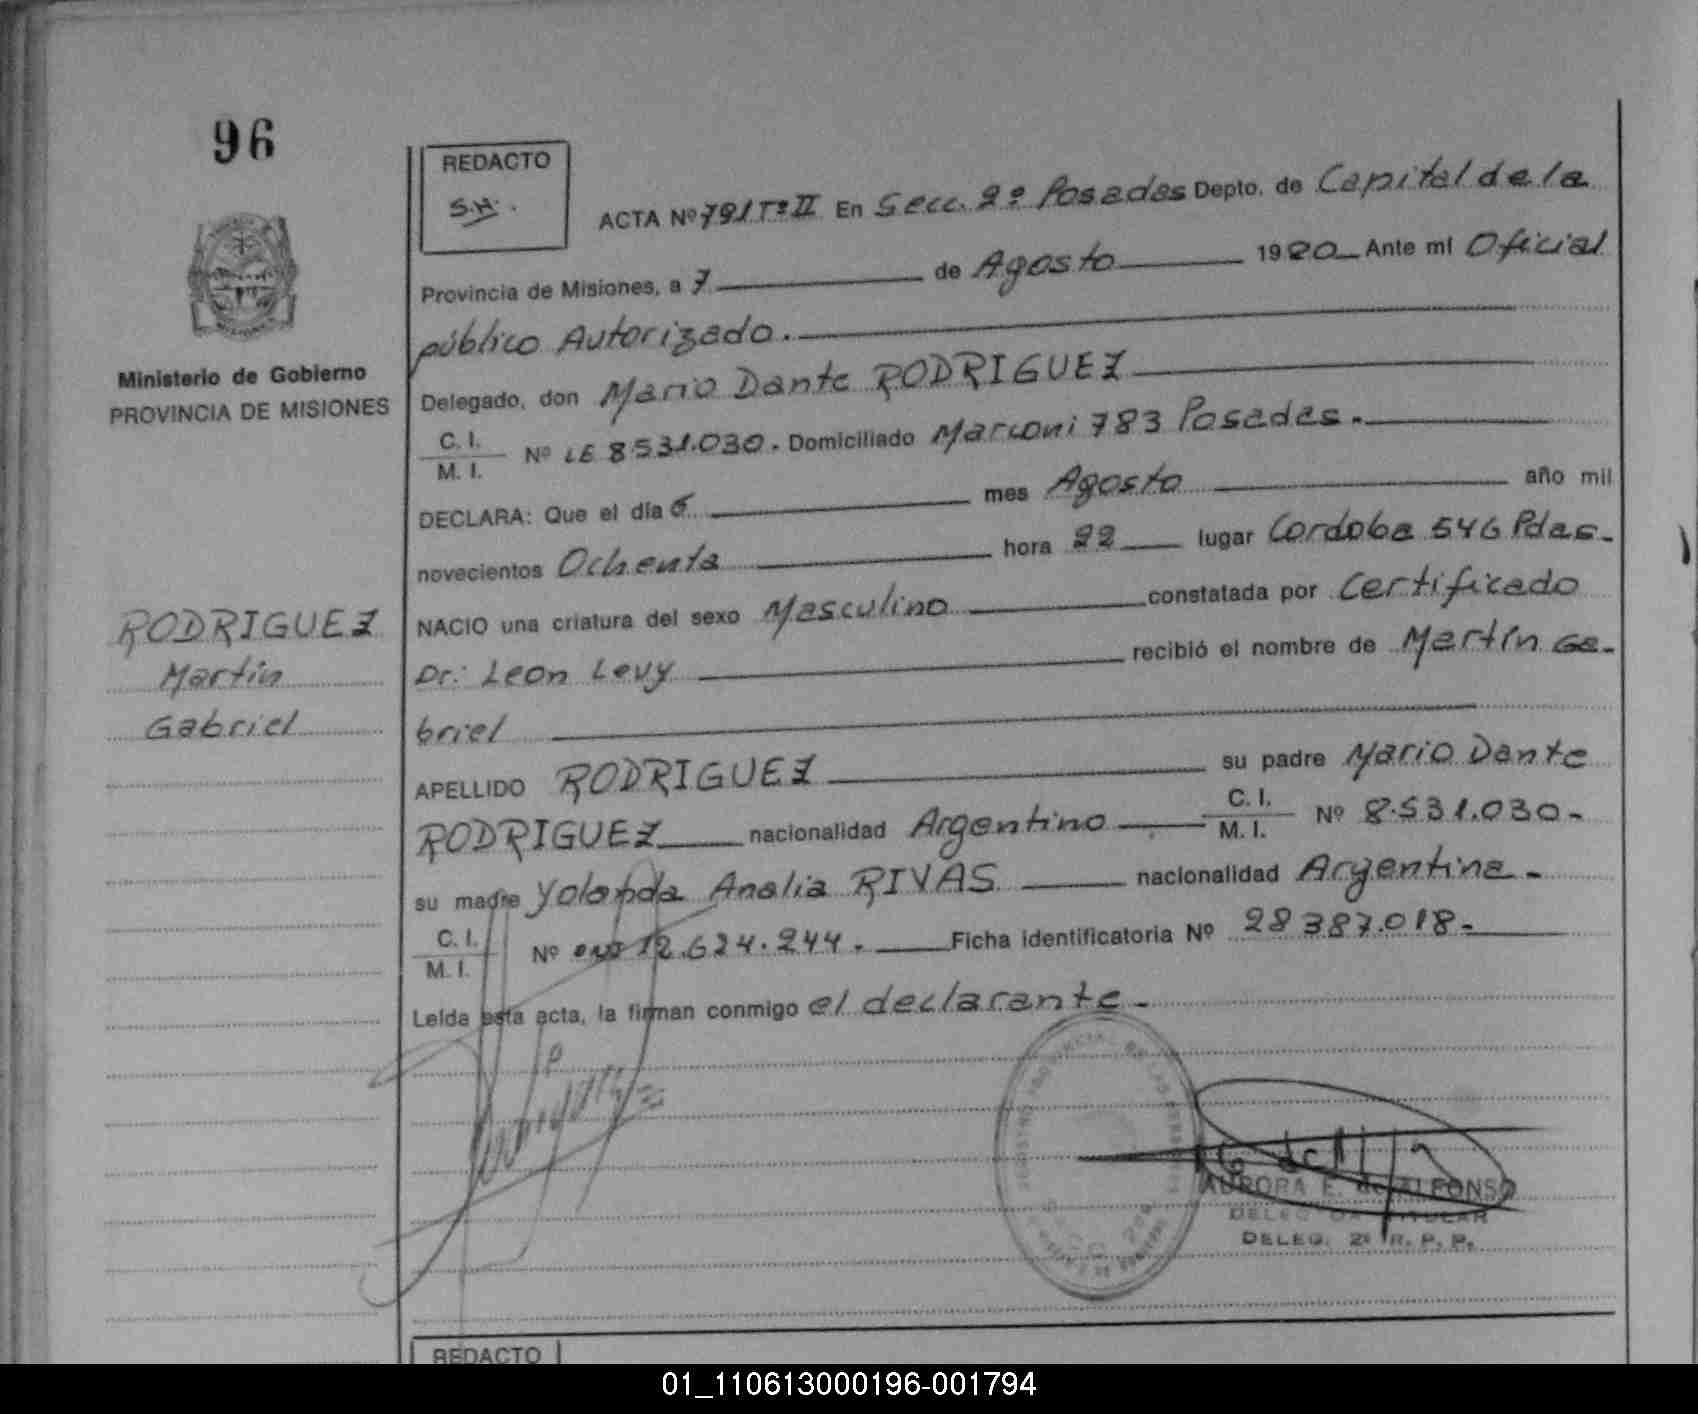 96
REDACTO
S.H.
ACTA Nº 791 Tº II En Secc. 2º Posadas Depto. de Capital de la
Provincia de Misiones, a 7 de Agosto 1980 Ante mí Oficial
público Autorizado.
Ministerio de Gobierno
PROVINCIA DE MISIONES
Delegado, don Mario Dante RODRIGUEZ
C. I.
M. I.
Nº LE 8.531.030. Domiciliado Marconi 783 Posadas.
DECLARA: Que el día 6 mes Agosto año mil
novecientos Ochenta hora 22 lugar Cordoba 546 Pdas.
NACIO una criatura del sexo Masculino constatada por Certificado
Dr: Leon Levy recibió el nombre de Martín Ga-
briel
RODRIGUEZ
Martín
Gabriel
APELLIDO RODRIGUEZ su padre Mario Dante
RODRIGUEZ nacionalidad Argentino C. I. M. I. Nº 8.531.030-
su madre Yolanda Analia RIVAS nacionalidad Argentina.-
C. I.
M. I.
Nº 12.624.244. Ficha identificatoria Nº 28387.018.-
Leída esta acta, la firman conmigo el declarante.-
AURORA E. de ALFONSO
DELEGADA TITULAR
DELEG. 2ª R. P. P.
REDACTO
01_110613000196-001794